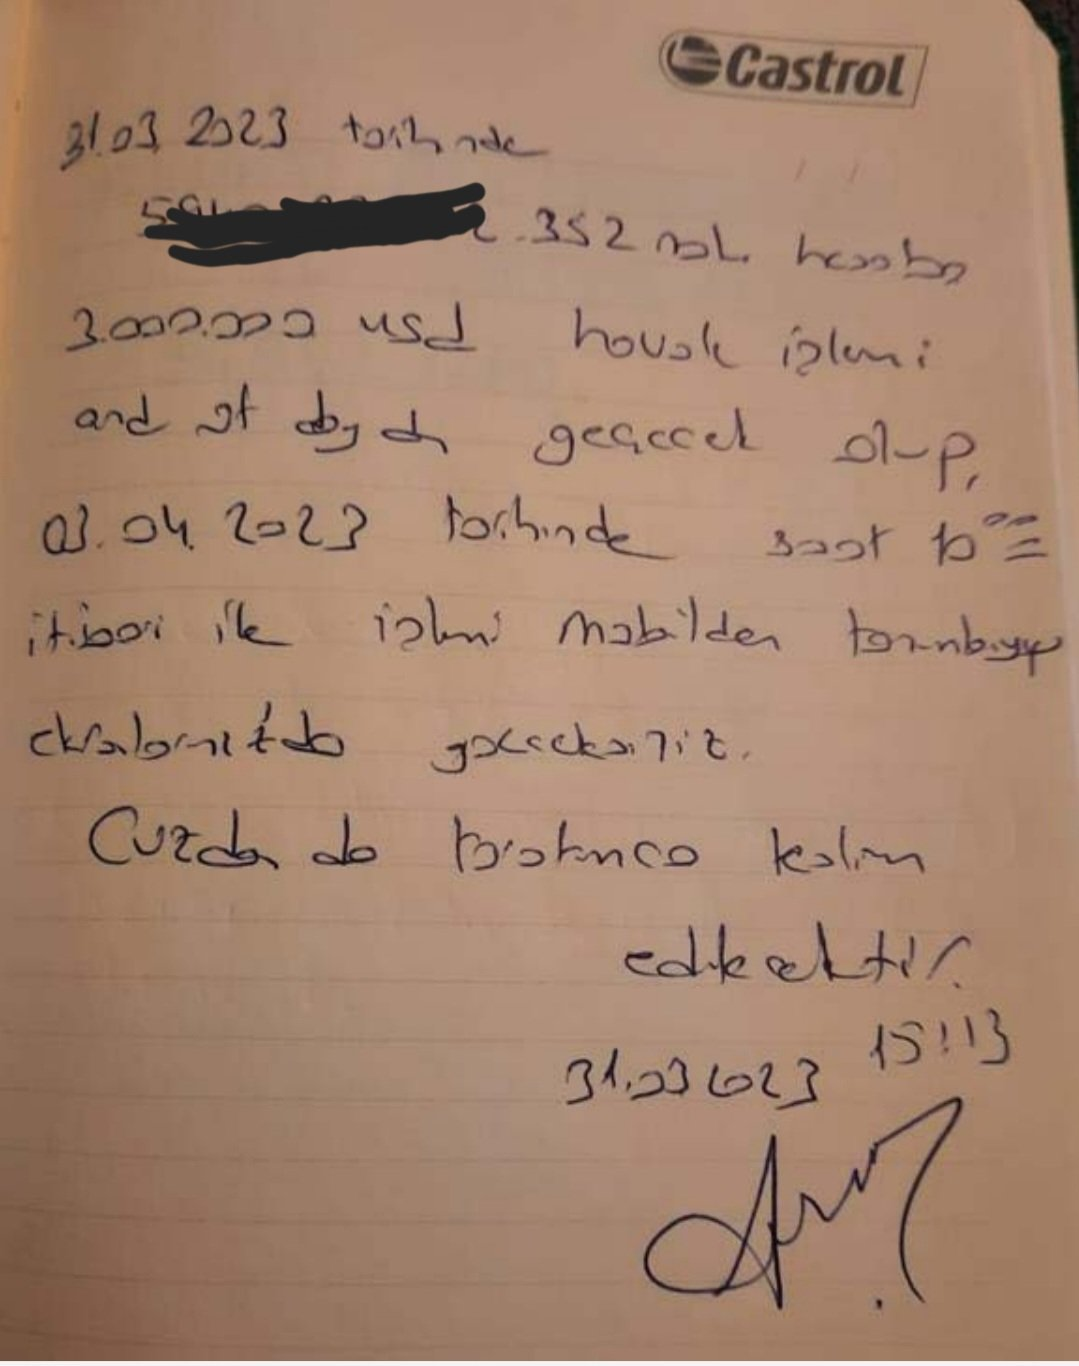 Castrol
31.03 2023 tarihinde
352 nol. hesaba
3.000.000 usd havale işlemi
and geçecek olup,
03.04.2023 tarihinde saat 10 00
itibari ile işlemi mobilden tanımlayıp
göreceksiniz.
Cuzdan da tarafınıza teslim
edilecektir.
31.03 2023 15:13